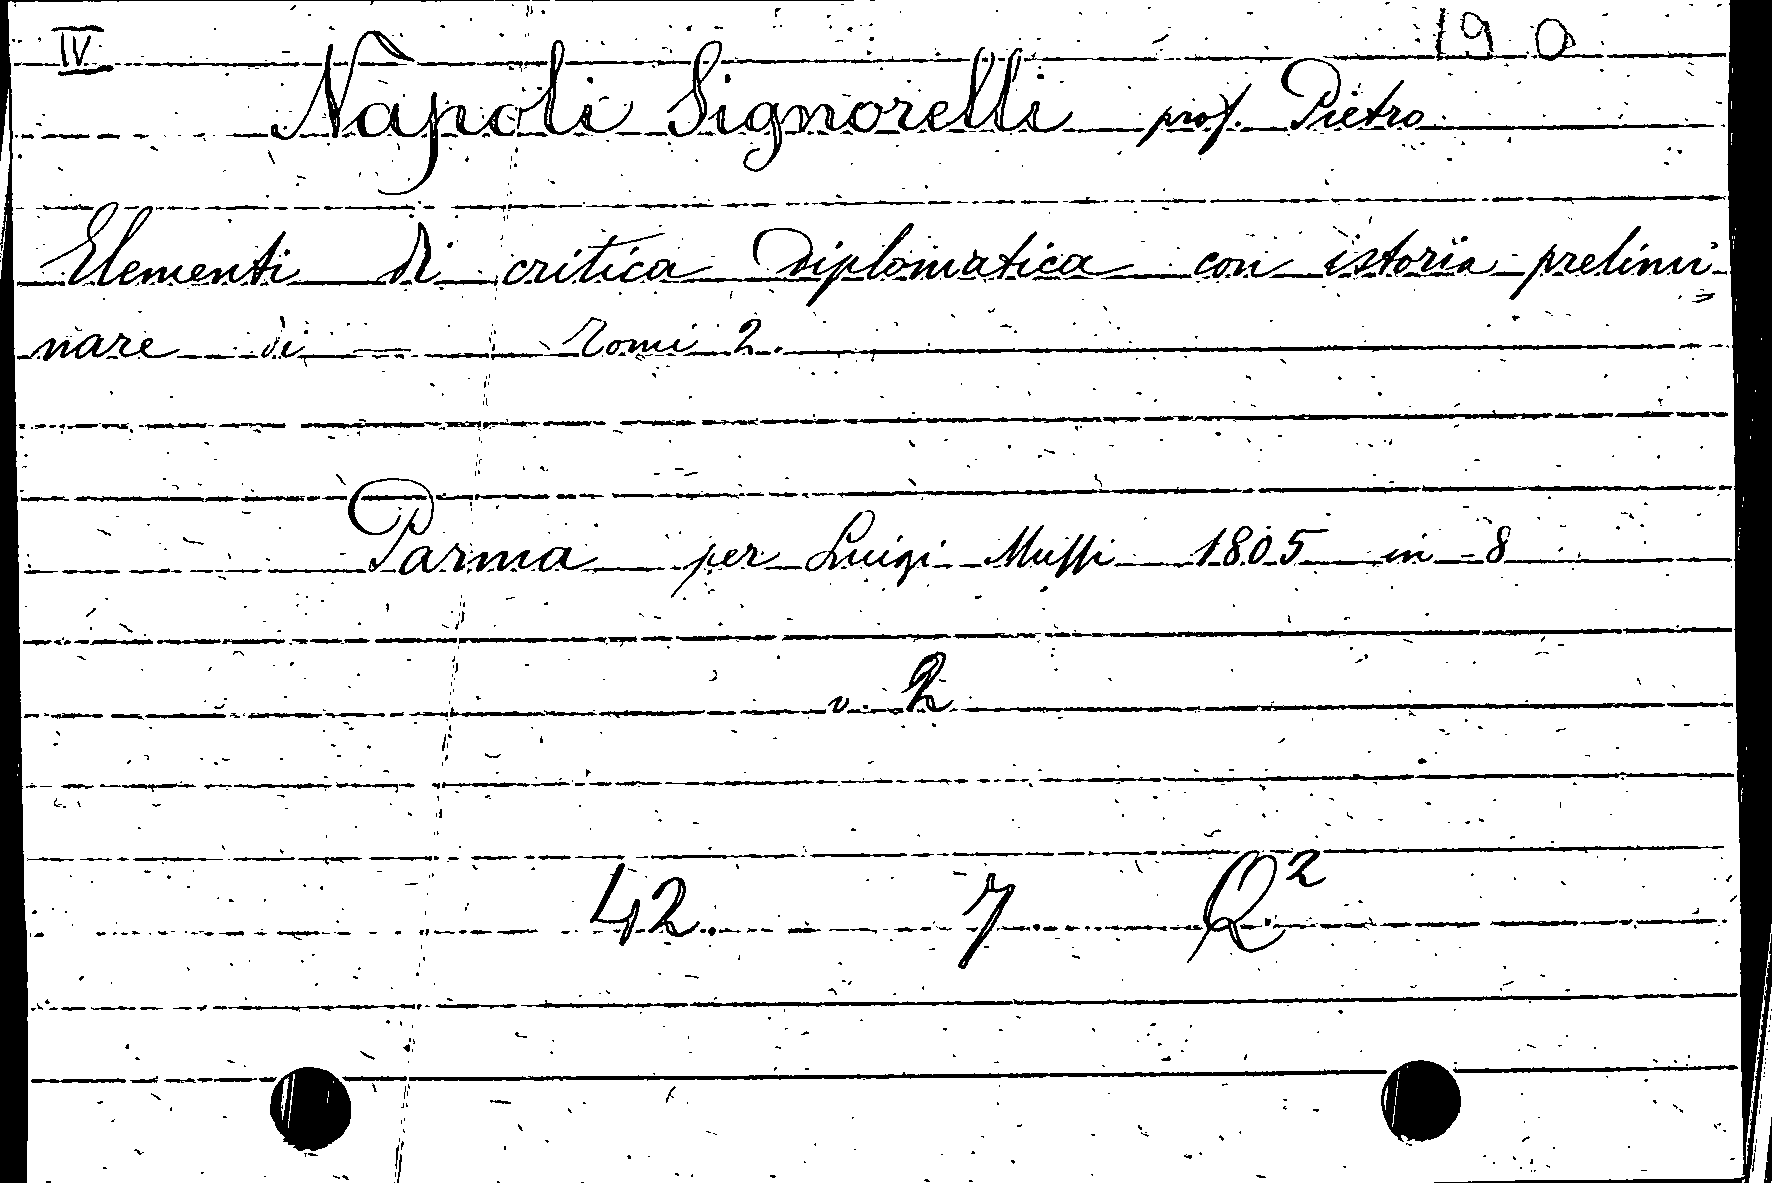 IV 19 0
Napoli Signorelli prof. Pietro
Elementi di critica Diplomatica con istoria prelimi=
nare di — Tomi 2.
Parma per Luigi Mussi 1805 in 8
v. 2
42. 7 Q²